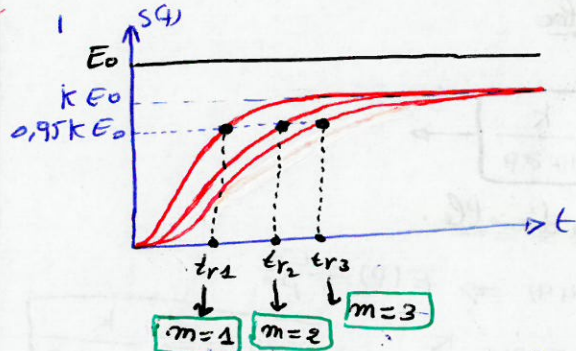 s(t)
E₀
K E₀
0,95 K E₀
t
tr1 tr2 tr3
m=1 m=2 m=3